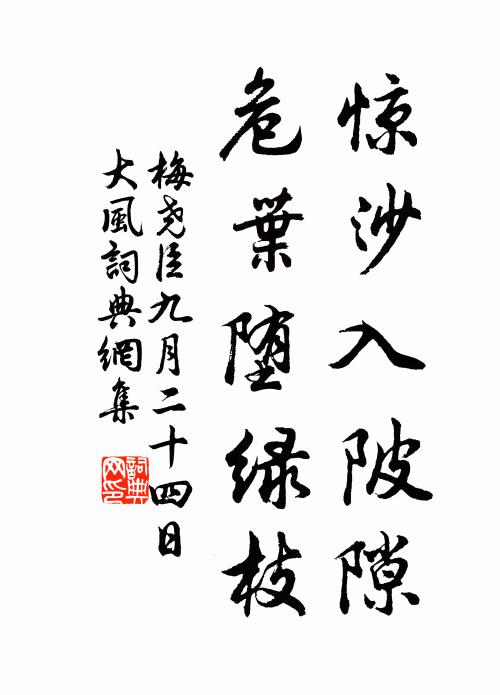 惊沙入陂隙
危葉堕绿枝
梅尧臣九月二十四日
大風詞典網集
詞典網印